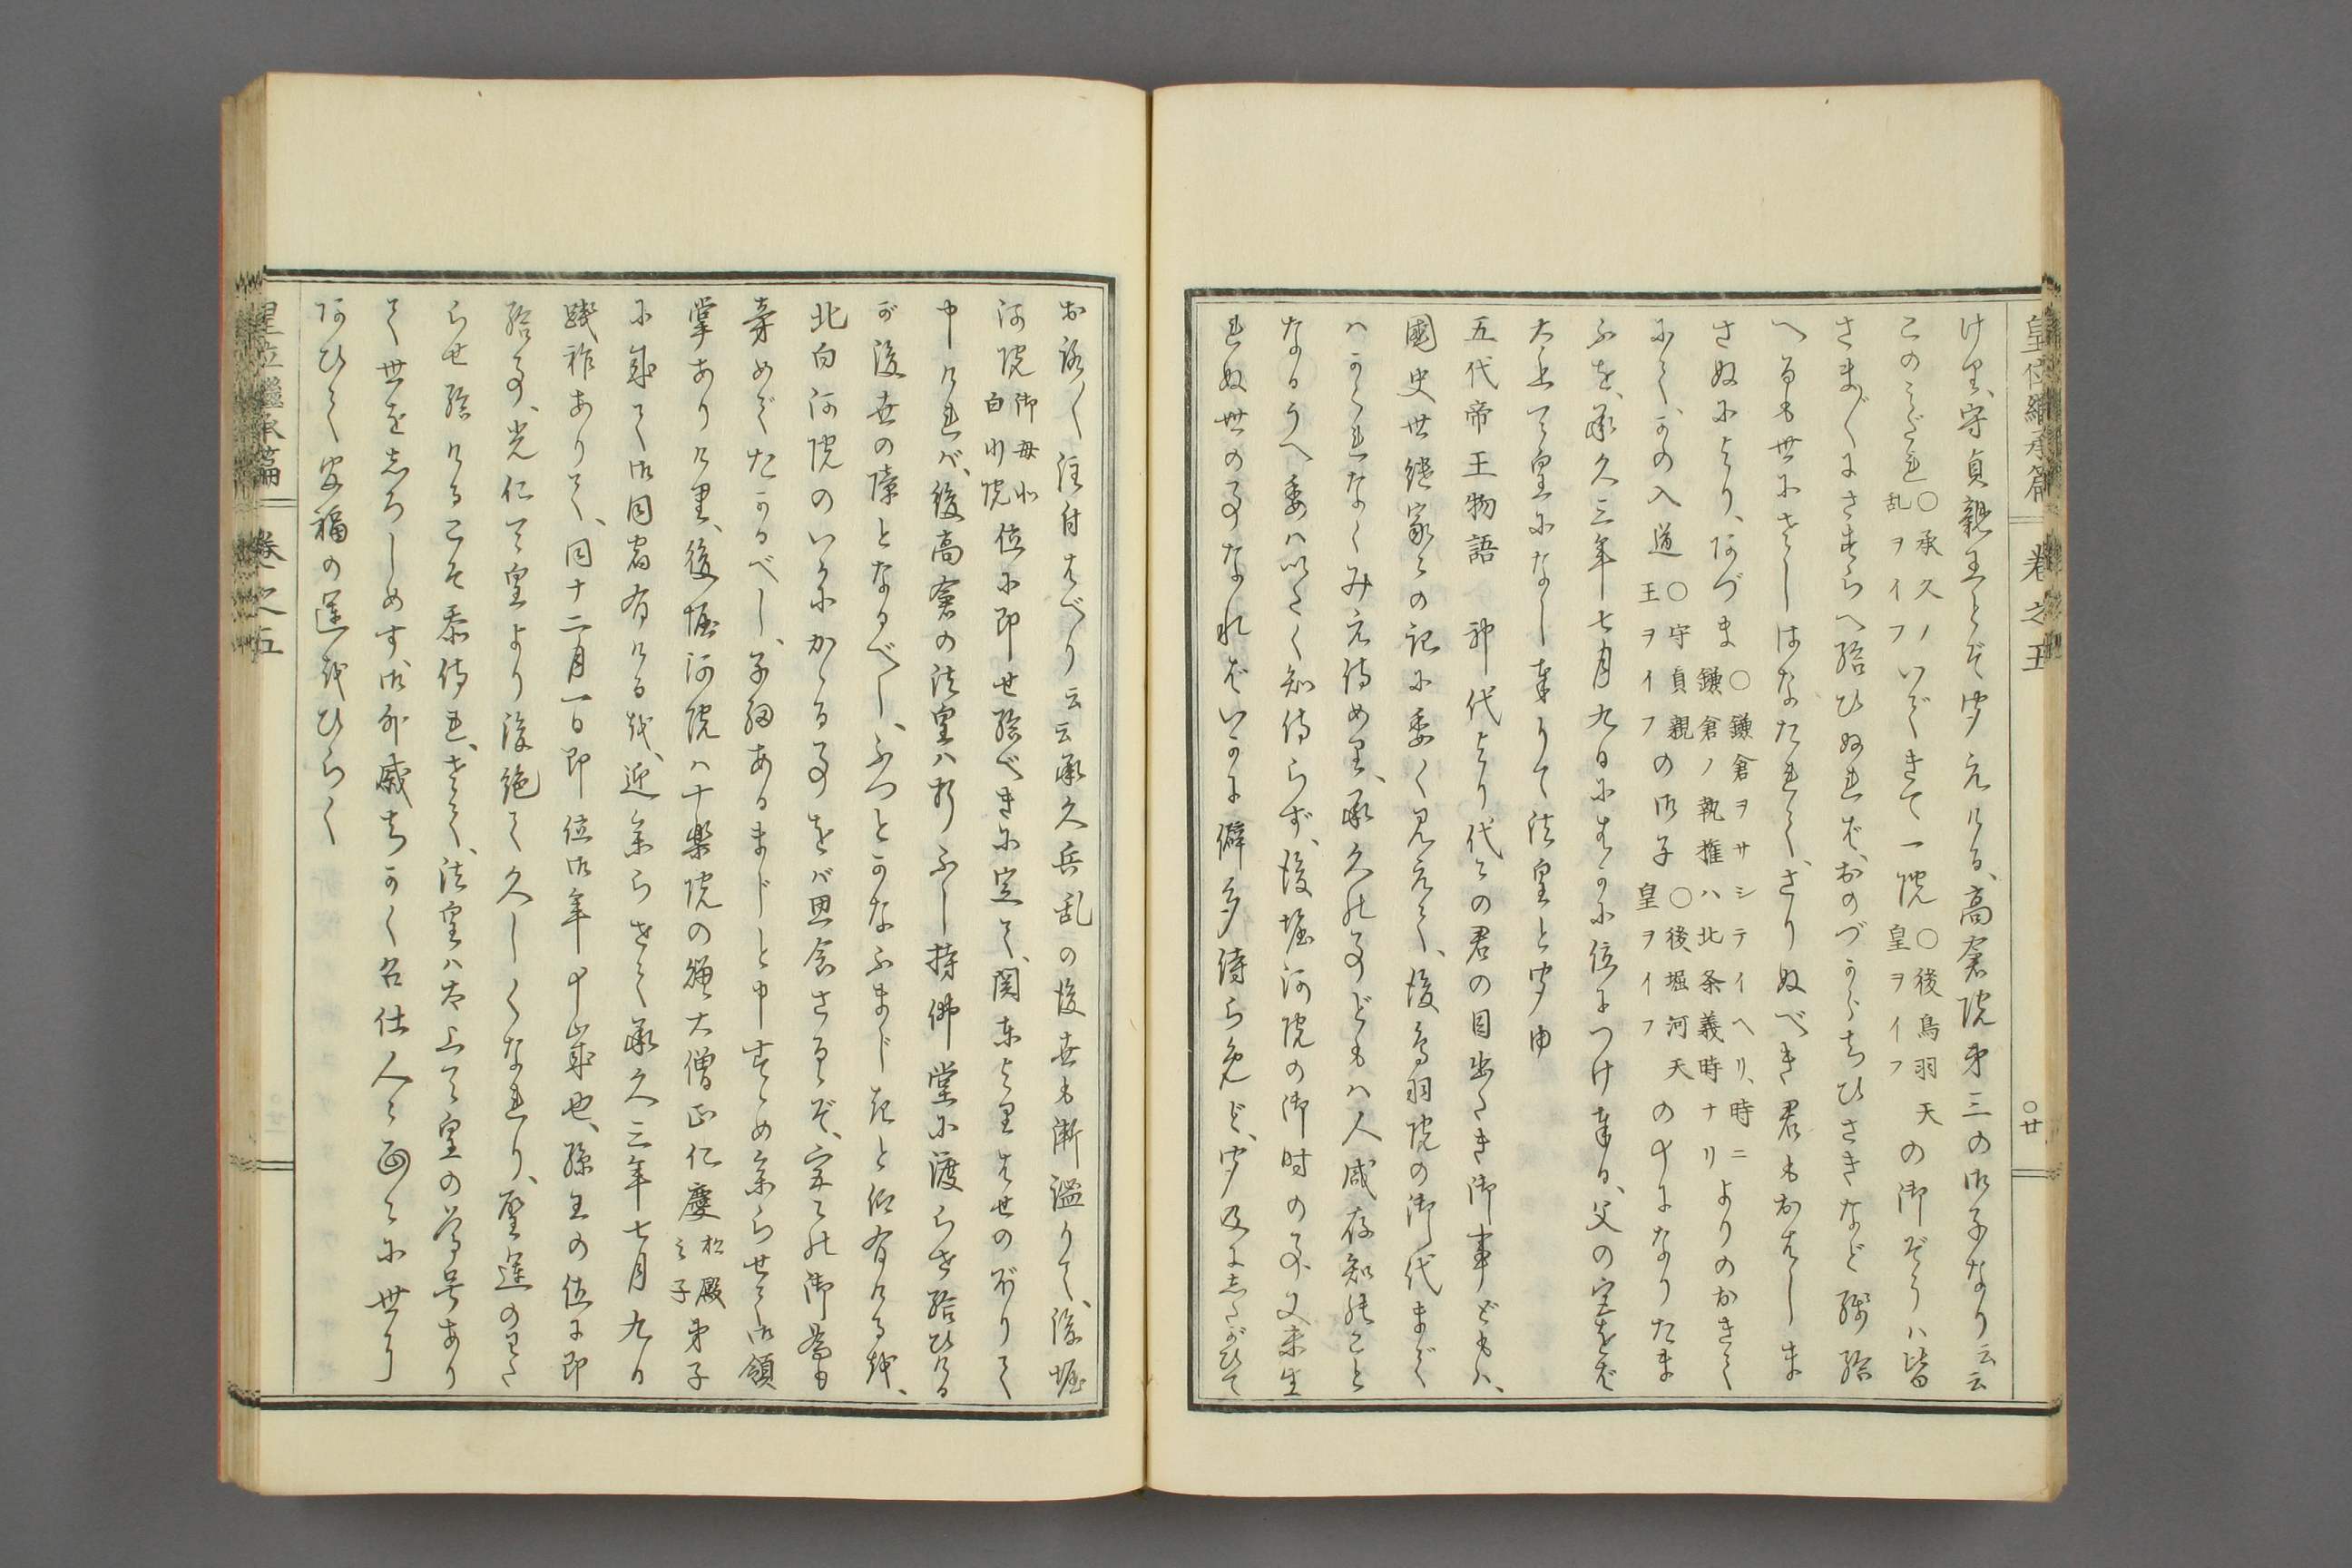 皇位繼承篇 卷之五 〇廿
けり、守貞親王とぞ聞えける、高倉院第三の御子なり云云
このみだれ〇承久ノ乱ヲイフいできて一院〇後鳥羽天皇ヲイフの御ぞうハ皆
さま〴〵にさすらへ給ひぬれば、おのづからちひさきなど殘給
へるも世にさしはなたれて、さりぬべき君もおはしま
さぬにより、あづま〇鎌倉ヲサシテイヘリ、時ニ鎌倉ノ執權ハ北条義時ナリよりのおきて
にて、かの入道〇守貞親王ヲイフの御子〇後堀河天皇ヲイフの十になりたま
ふを、承久三年七月九日にはかに位につけ奉る、父の宮をば
太上天皇になし奉りて法皇と聞ゆ
五代帝王物語 神代より代々の君の目出たき御事どもハ、
國史世繼家々の記に委く見えて、後鳥羽院の御代まで
ハかくれなくみえ侍めり、承久の事どもハ人咸存知のこと
なるうへ委ハいたく知侍らず、後堀河院の御時の事、又未生
れぬ世の事なればいかに僻多侍らめど、聞及にしたがひて
おろ〳〵注付はべり云云承久兵亂の後世も漸謐りて、後堀
河院御母北白川院位に即せ給べきに定て、関東よりはせのぼりて
申ければ、後高倉の法皇ハ折ふし持佛堂に渡らせ給ひける
が後世の障となるべし、ふつとかなふまじきと仰有けるを、
北白河院のいかにかゝる事をバ思食さるゝぞ、宮の御為も
旁めでたかるべし、子細あるまじと申すゝめ参らせて、御領
掌ありけり、後堀河院ハ十楽院の僧大僧正仁慶松殿之子弟子
に成て御同宿有けるを、迎参らせて承久三年七月九日
踐祚ありて、同十二月一日即位御年十歳也、孫王の位に即
給事、光仁天皇より後絶て久しくなれり、聖運のひら
らせ給けるこそ忝侍れ、さて、法皇ハ太上天皇の尊号あり
て世をしろしめす、御外戚ちかく召仕人々面々に世に
あひて安福の運をひらく
皇位繼承篇 卷之五